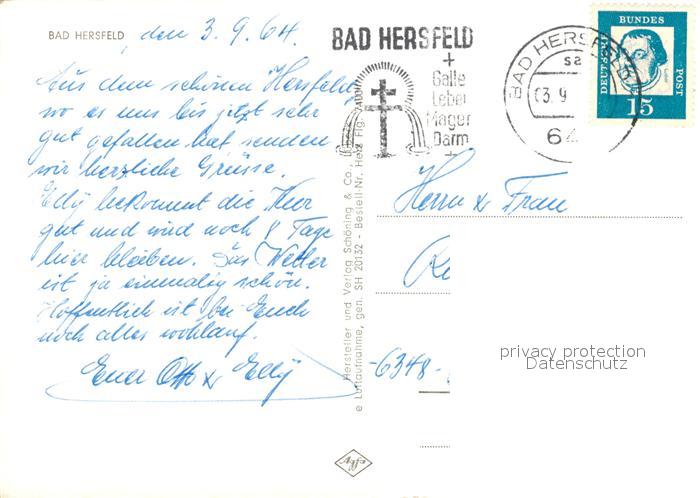 BAD HERSFELD, den 3.9.64.
Aus dem schönen Hersfeld,
wo es uns bis jetzt sehr
gut gefallen hat senden
wir herzliche Grüsse.
Elly bekommt die Kur
gut und wird noch 8 Tage
hier bleiben. Das Wetter
ist ja einmalig schön.
Hoffentlich ist bei Euch
noch alles wohlauf.
Euer Otto & Elly
BAD HERSFELD
+
Galle
Leber
Mager
Darm
+
BAD HERSFELD
sa
03.9
64
DEUTSCHE
BUNDES
POST
15
Hersteller und Verlag Schöning & Co.
e Luftaufnahme, gen. SH 20132 - Bestell-Nr. Herf
Herrn & Frau
-6348-
privacy protection
Datenschutz
Agfa